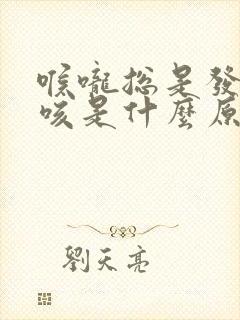 喉嚨總是發
咳是什麼原
劉天亮